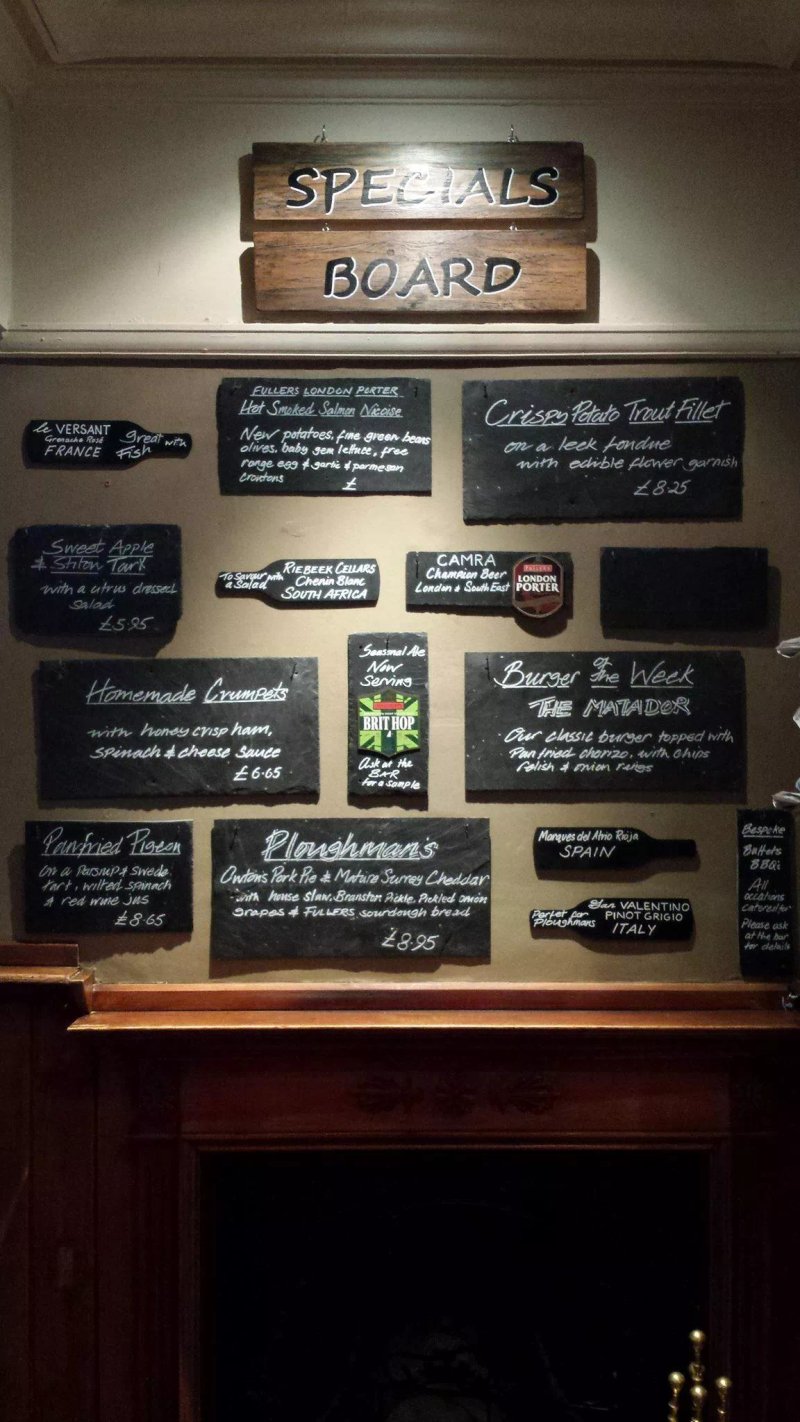 SPECIALS
BOARD
le VERSANT
Grenache Rosé
FRANCE
Great with
Fish
FULLERS LONDON PORTER
Hot Smoked Salmon Nicoise
New potatoes, fine green beans
olives, baby gem lettuce, free
range egg & garlic & parmesan
croutons
£
Crispy Potato Trout Fillet
on a leek fondue
with edible flower garnish
£8.25
Sweet Apple
& Stilton Tart
with a citrus dressed
salad
£5.95
To Savour with
a Salad
RIEBEEK CELLARS
Chenin Blanc
SOUTH AFRICA
CAMRA
Champion Beer
London & South East
FULLER'S
LONDON
PORTER
Homemade Crumpets
with honey crisp ham,
spinach & cheese sauce
£6.65
Seasonal Ale
Now
Serving
BRIT HOP
Ask at the
BAR
for a sample
Burger of the Week
THE MATADOR
Our classic burger topped with
Pan fried chorizo, with chips
relish & onion rings
Panfried Pigeon
on a Parsnip & Swede
tart, wilted spinach
& red wine Jus
£8.65
Ploughman's
Owton's Pork Pie & Mature Surrey Cheddar
with house slaw, Branston Pickle, Pickled onion
grapes & FULLERS sourdough bread
£8.95
Marques del Atrio Rioja
SPAIN
Perfet for
Ploughmans
Gran VALENTINO
PINOT GRIGIO
ITALY
Bespoke
Buffets
BBQ's
All
occations
catered for
Please ask
at the bar
for details